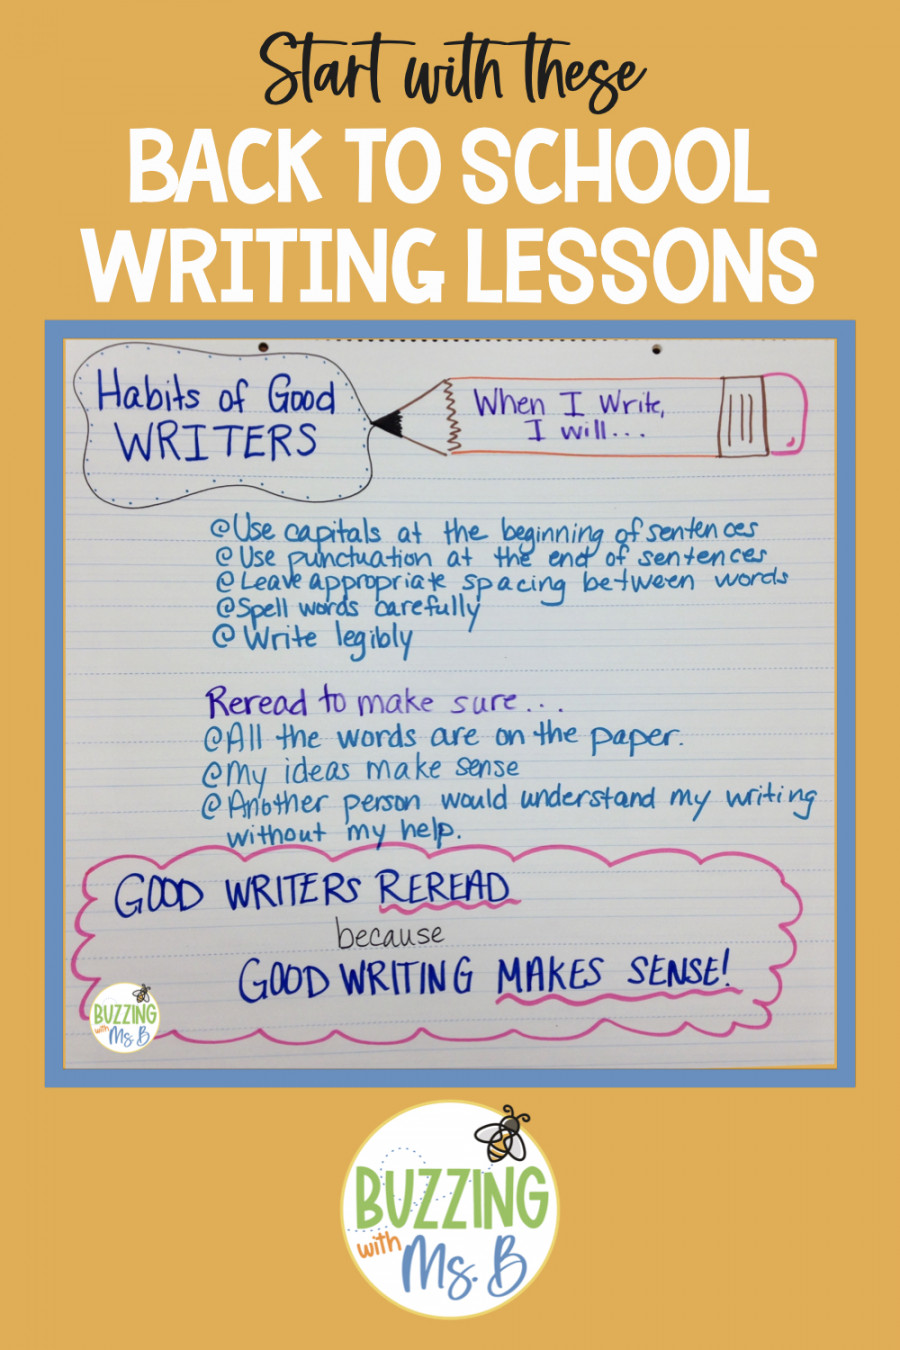 Start with these
BACK TO SCHOOL
WRITING LESSONS
Habits of Good
WRITERS
When I Write,
I will...
@Use capitals at the beginning of sentences
@Use punctuation at the end of sentences
@Leave appropriate spacing between words
@Spell words carefully
@Write legibly
Reread to make sure...
@All the words are on the paper.
@My ideas make sense
@Another person would understand my writing
without my help.
GOOD WRITERS REREAD
because
GOOD WRITING MAKES SENSE!
BUZZING
with Ms. B
BUZZING
with Ms. B